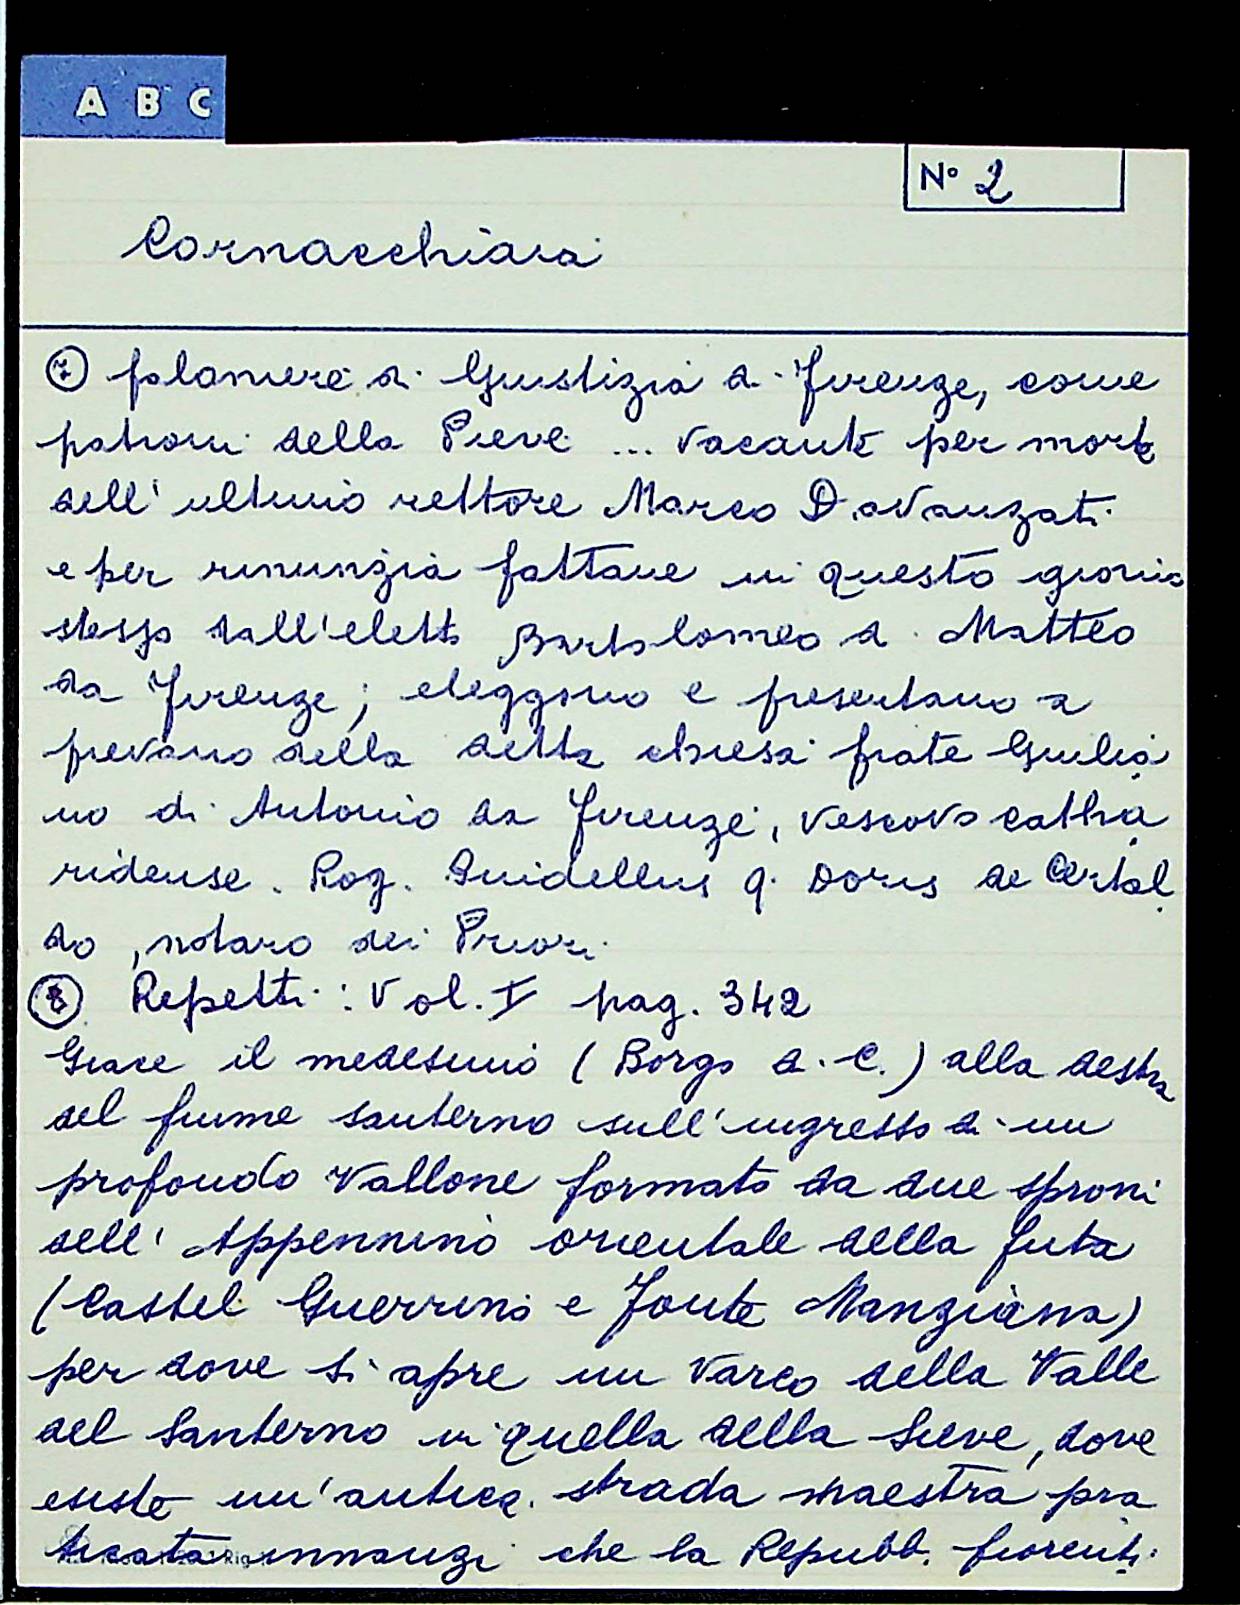 A B C
N° 2
Cornacchiaia
⑦ falaniere di Giustizia di Firenze, come
patroni della Pieve ... vacante per morte
dell' ultimo rettore Marco Davanzati
e per rinunzia fattane in questo giorno
stesso dall'eletto Bartolomeo di Matteo
da Firenze; eleggono e presentano a
pievano della detta chiesa frate Giulia
no di Antonio da Firenze, vescovo catha
ridense. Rog. Guidellus q. Doris de Certal
do, notaro dei Priori.
⑧ Repetti: Vol. I pag. 342
Giace il medesimo (Borgo a. C.) alla destra
del fiume santerno sull'ingresso di un
profondo vallone formato da due sproni
dell' Appennino orientale della futa
(Castel Guerrino e Fonte Manziana)
per dove si apre un varco della Valle
del Santerno in quella della Sieve, dove
esiste un'antica strada maestra pra
ticata innanzi che la Repubb. fiorenti